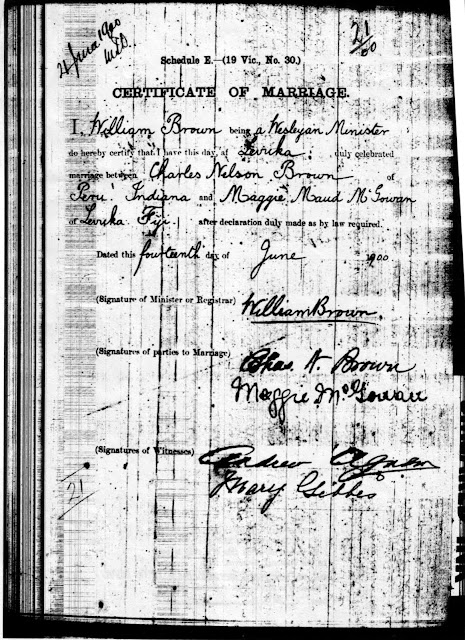 21 June 1900
21/00
Schedule E.—(19 Vic., No. 30.)
CERTIFICATE OF MARRIAGE.
I, William Brown being a Wesleyan Minister
do hereby certify that I have this day, at Levuka duly celebrated
marriage between Charles Nelson Brown of
Peru. Indiana and Maggie Maud McGowan
of Levuka Fiji after declaration duly made as by law required.
Dated this fourteenth day of June 1900
(Signature of Minister or Registrar) William Brown.
(Signatures of parties to Marriage) Chas. N. Brown
Maggie McGowan
(Signatures of Witnesses) Andrew
Mary Gibbes
21